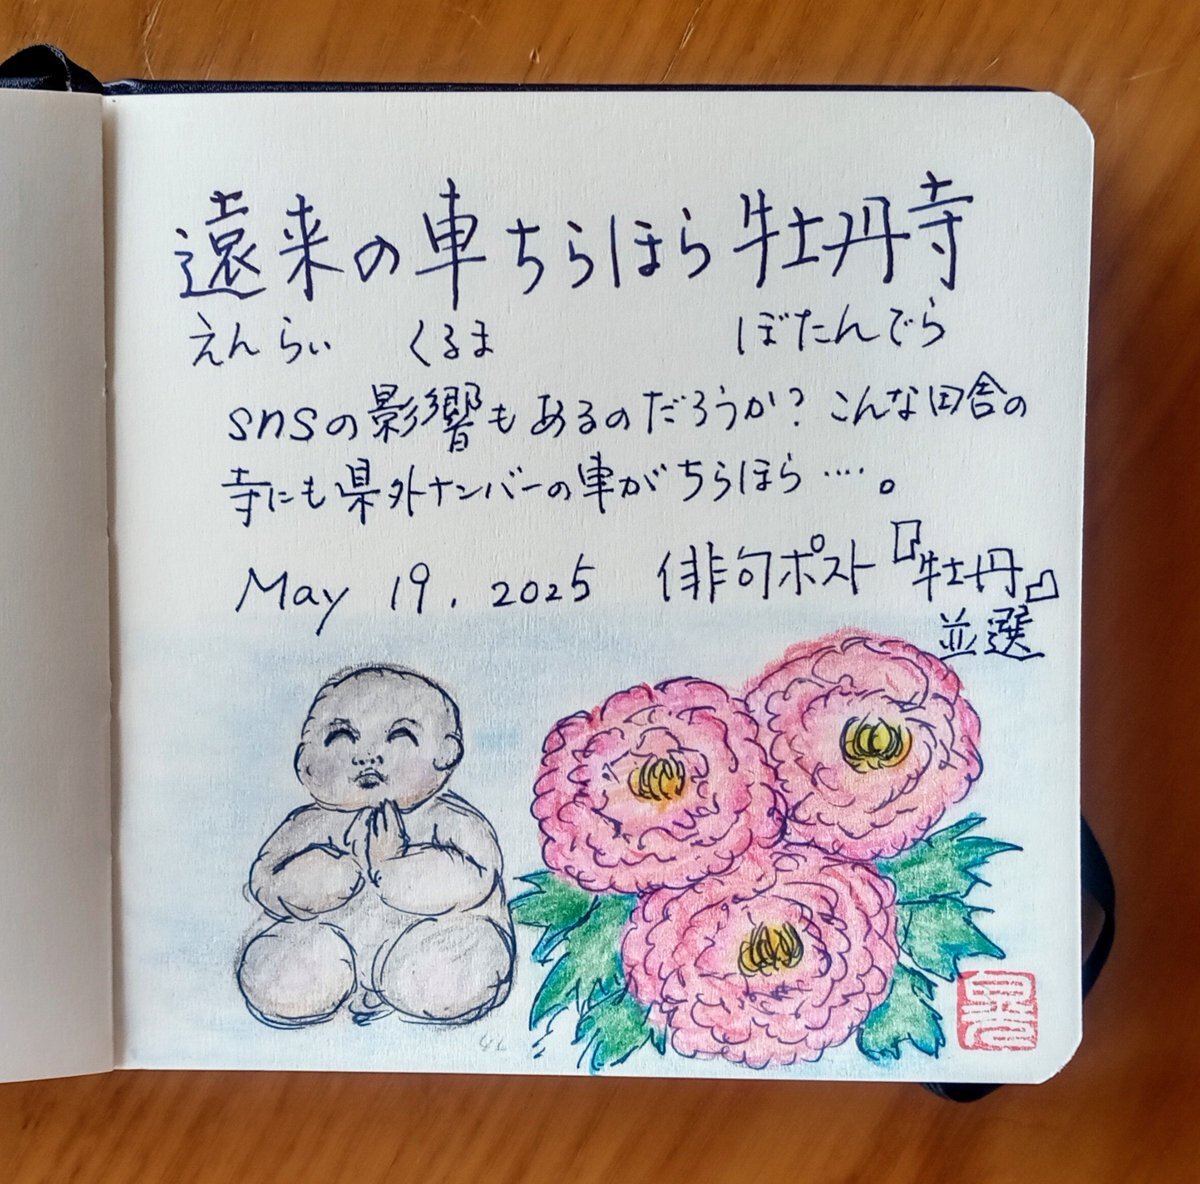 遠来の車ちらほら牡丹寺
えんらい くるま ぼたんでら
snsの影響もあるのだろうか?こんな田舎の
寺にも県外ナンバーの車がちらほら‥‥。
May 19, 2025 俳句ポスト『牡丹』
並選